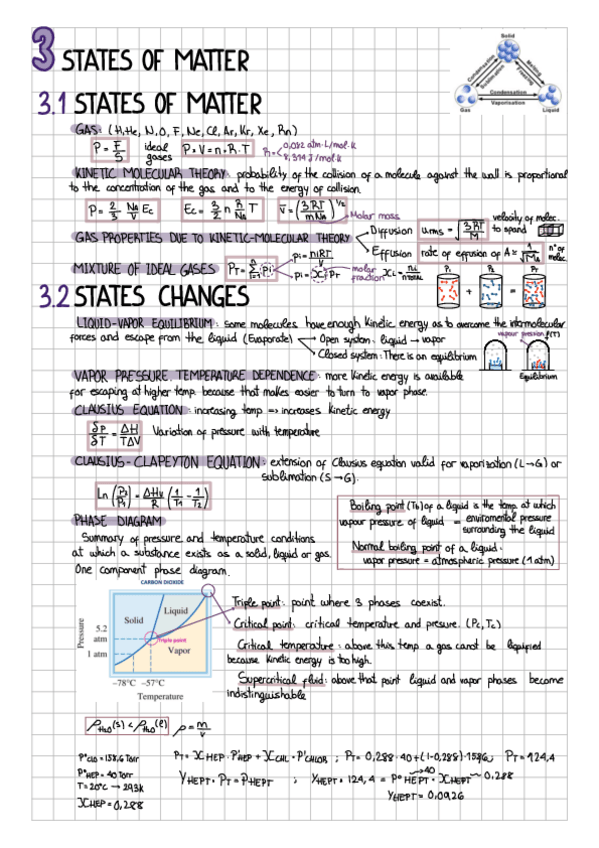 3 STATES OF MATTER
Solid
Condensation
Sublimation
Melting
Freezing
Condensation
Gas
Vaporisation
Liquid
3.1 STATES OF MATTER
GAS: (H, He, N, O, F, Ne, Cl, Ar, Kr, Xe, Rn)
P = F/S ideal gases P×V = n·R·T
0,082 atm·L/mol·K
8,314 J/mol·K
KINETIC MOLECULAR THEORY: probability of the collision of a molecule against the wall is proportional
to the concentration of the gas and to the energy of collision.
P = 2/3 NA/V Ec
Ec = 3/2 n R/NA T
Molar mass
velocity of molec.
to spand
GAS PROPERTIES DUE TO KINETIC-MOLECULAR THEORY
Diffusion urms = √(3RT/M)
Effusion rate of effusion of A ≈
nº of molec.
MIXTURE OF IDEAL GASES
pi = niRT/V
pi = xi·PT
molar fraction xi = ni/nTOTAL
P1 P2 PT
+ =
3.2 STATES CHANGES
LIQUID-VAPOR EQUILIBRIUM: some molecules have enough Kinetic energy as to overcome the intermolecular
forces and escape from the liquid (Evaporate)
Open system: liquid → vapor
Closed system: There is an equilibrium
vapour pression f(T)
Equilibrium
VAPOR PRESSURE. TEMPERATURE DEPENDENCE: more Kinetic energy is available
for escaping at higher temp. because that makes easier to turn to vapor phase.
CLAUSIUS EQUATION: increasing temp => increases Kinetic energy
δP/δT = ΔH/TΔV Variation of pressure with temperature
CLAUSIUS-CLAPEYTON EQUATION: extension of Clausius equation valid for vaporization (L→G) or
sublimation (S→G).
Ln (P2/P1) = ΔHv/R (1/T1 - 1/T2)
Boiling point (Tb) of a liquid is the temp. at which
vapour pressure of liquid = enviromental pressure
surrounding the liquid
Normal boiling point of a liquid:
vapor pressure = atmospheric pressure (1 atm)
PHASE DIAGRAM
Summary of pressure and temperature conditions
at which a substance exists as a solid, liquid or gas.
One component phase diagram.
CARBON DIOXIDE
Pressure
5.2 atm
1 atm
Solid
Liquid
Triple point
Vapor
−78°C −57°C
Temperature
Triple point: point where 3 phases coexist.
Critical point: critical temperature and presure. (Pc, Tc)
Critical temperature: above this temp a gas canot be liquified
because Kinetic energy is too high.
Supercritical fluid: above that point liquid and vapor phases become
indistinguishable
ρH2O(s) < ρH2O(l) ρ = m/v
P°CLO = 158,6 Torr
P°HEP = 40 Torr
T = 20°C → 293K
XHEP = 0,288
PT = XHEP · P°HEP + XCHL · P°CHLOR ; PT = 0,288 · 40 + (1-0,288) · 158,6 PT = 124,4
YHEPT · PT = PHEPT ; YHEPT · 124,4 = P°HEPT · XHEPT
40
0,288
YHEPT = 0,0926